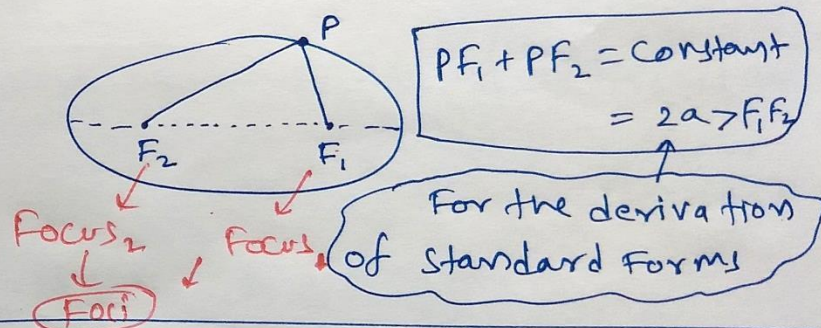 P
PF₁ + PF₂ = Constant
= 2a > F₁F₂
F₂ F₁
For the derivation
of standard Forms
Focus₂ Focus₁
Foci